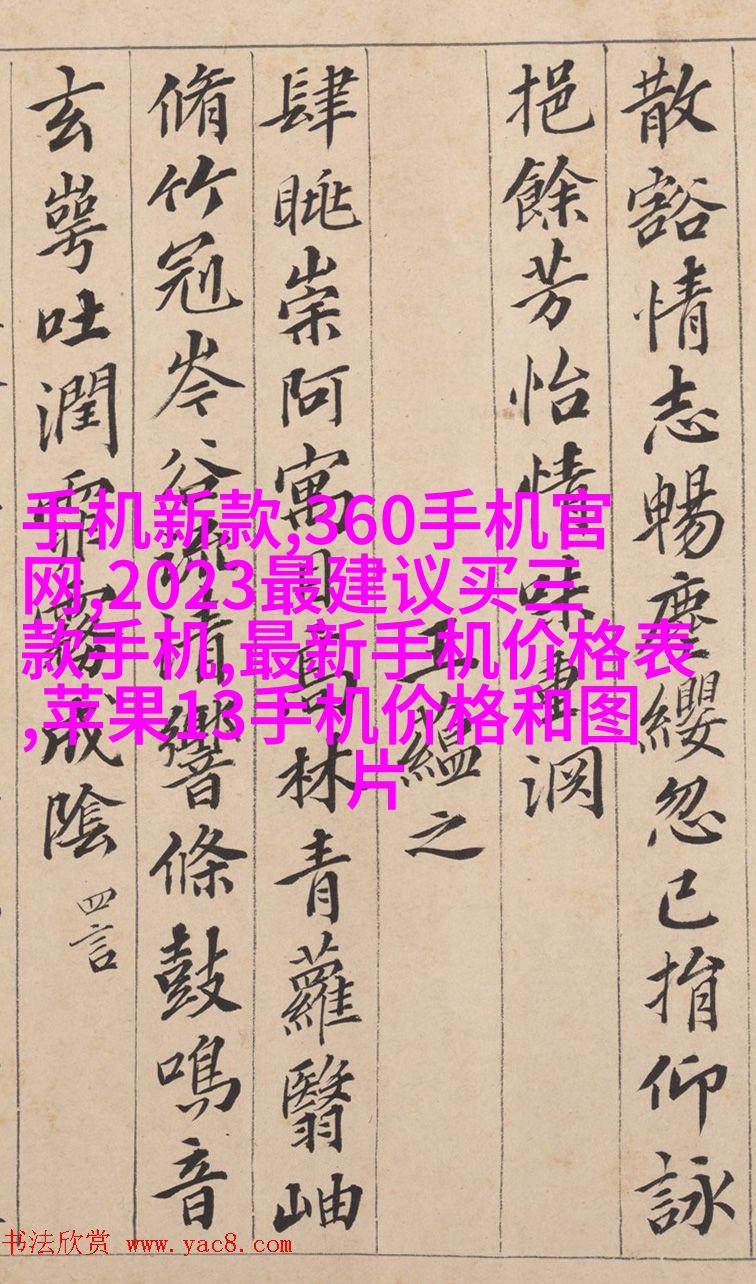 散豁情志暢塵纓忽已捐仰詠
挹餘芳怡情味重渊
王蘊之
肆眺崇阿寓目高林青蘿翳岫
脩竹冠岑谷流清響條鼓鳴音
玄崿吐潤霏霧成陰 四言
手机新款,360手机官
网,2023最建议买三
款手机,最新手机价格表
,苹果13手机价格和图
片
书法欣赏 www.yac8.com